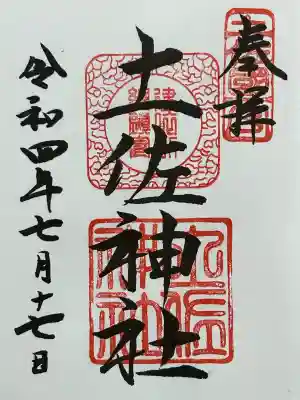 奉拝
土佐神社
令和四年七月十七日
土佐神社